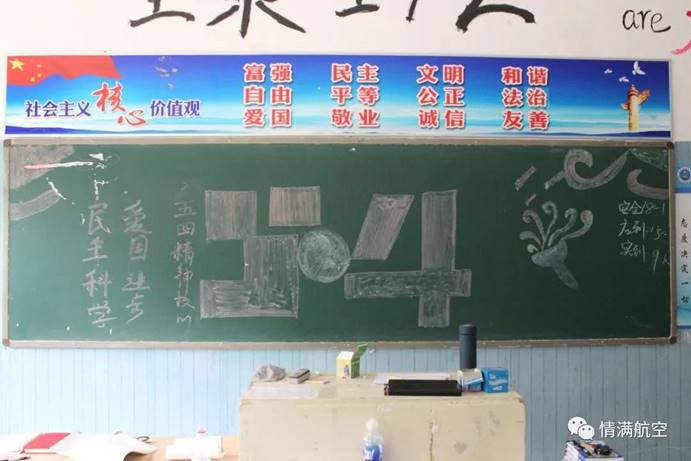 are
社会主义核心价值观
富强 民主 文明 和谐
自由 平等 公正 法治
爱国 敬业 诚信 友善
民主科学
爱国进步
五四精神核心
5·4
安全18-1
应到:15
实到:9人
态度决定一切
情满航空